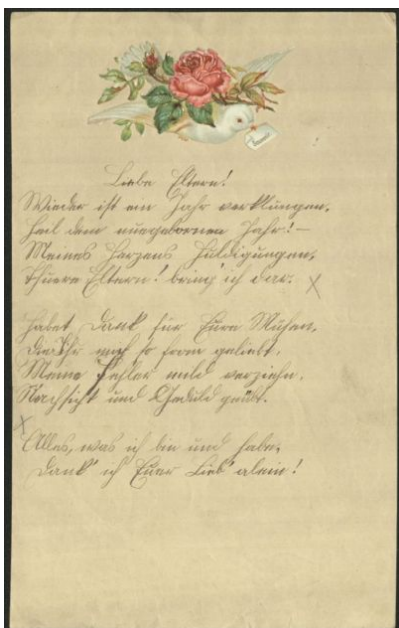 Liebe Eltern!
Wieder ist ein Jahr verklungen,
Heil dem neugebornen Jahr! –
Meines Herzens Huldigungen,
Theuere Eltern! bring' ich dar. X
Habet Dank für Eure Mühen,
Die Ihr mich so from geliebt,
Meine Fehler mild verziehn,
Nachsicht und Geduld geübt.
X
Alles, was ich bin und habe,
Dank' ich Euer Lieb' alein!